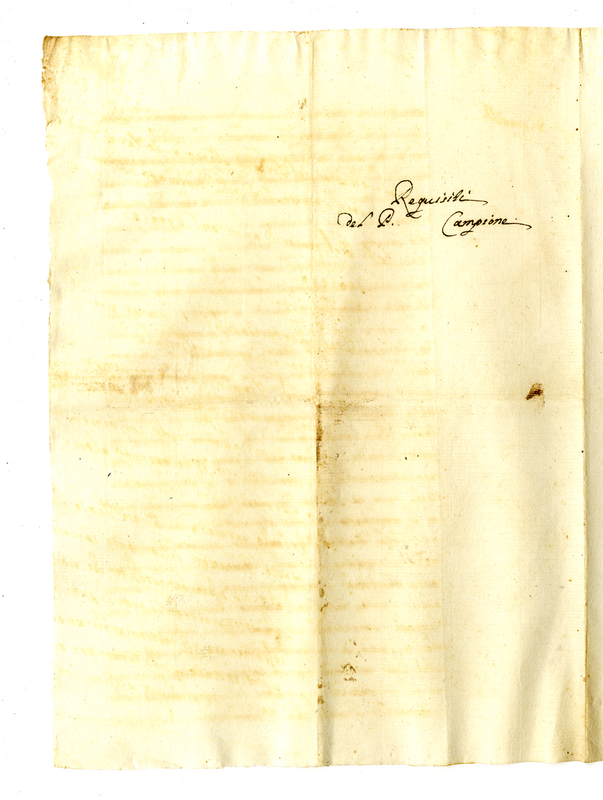 Requisiti
del P. Campione.